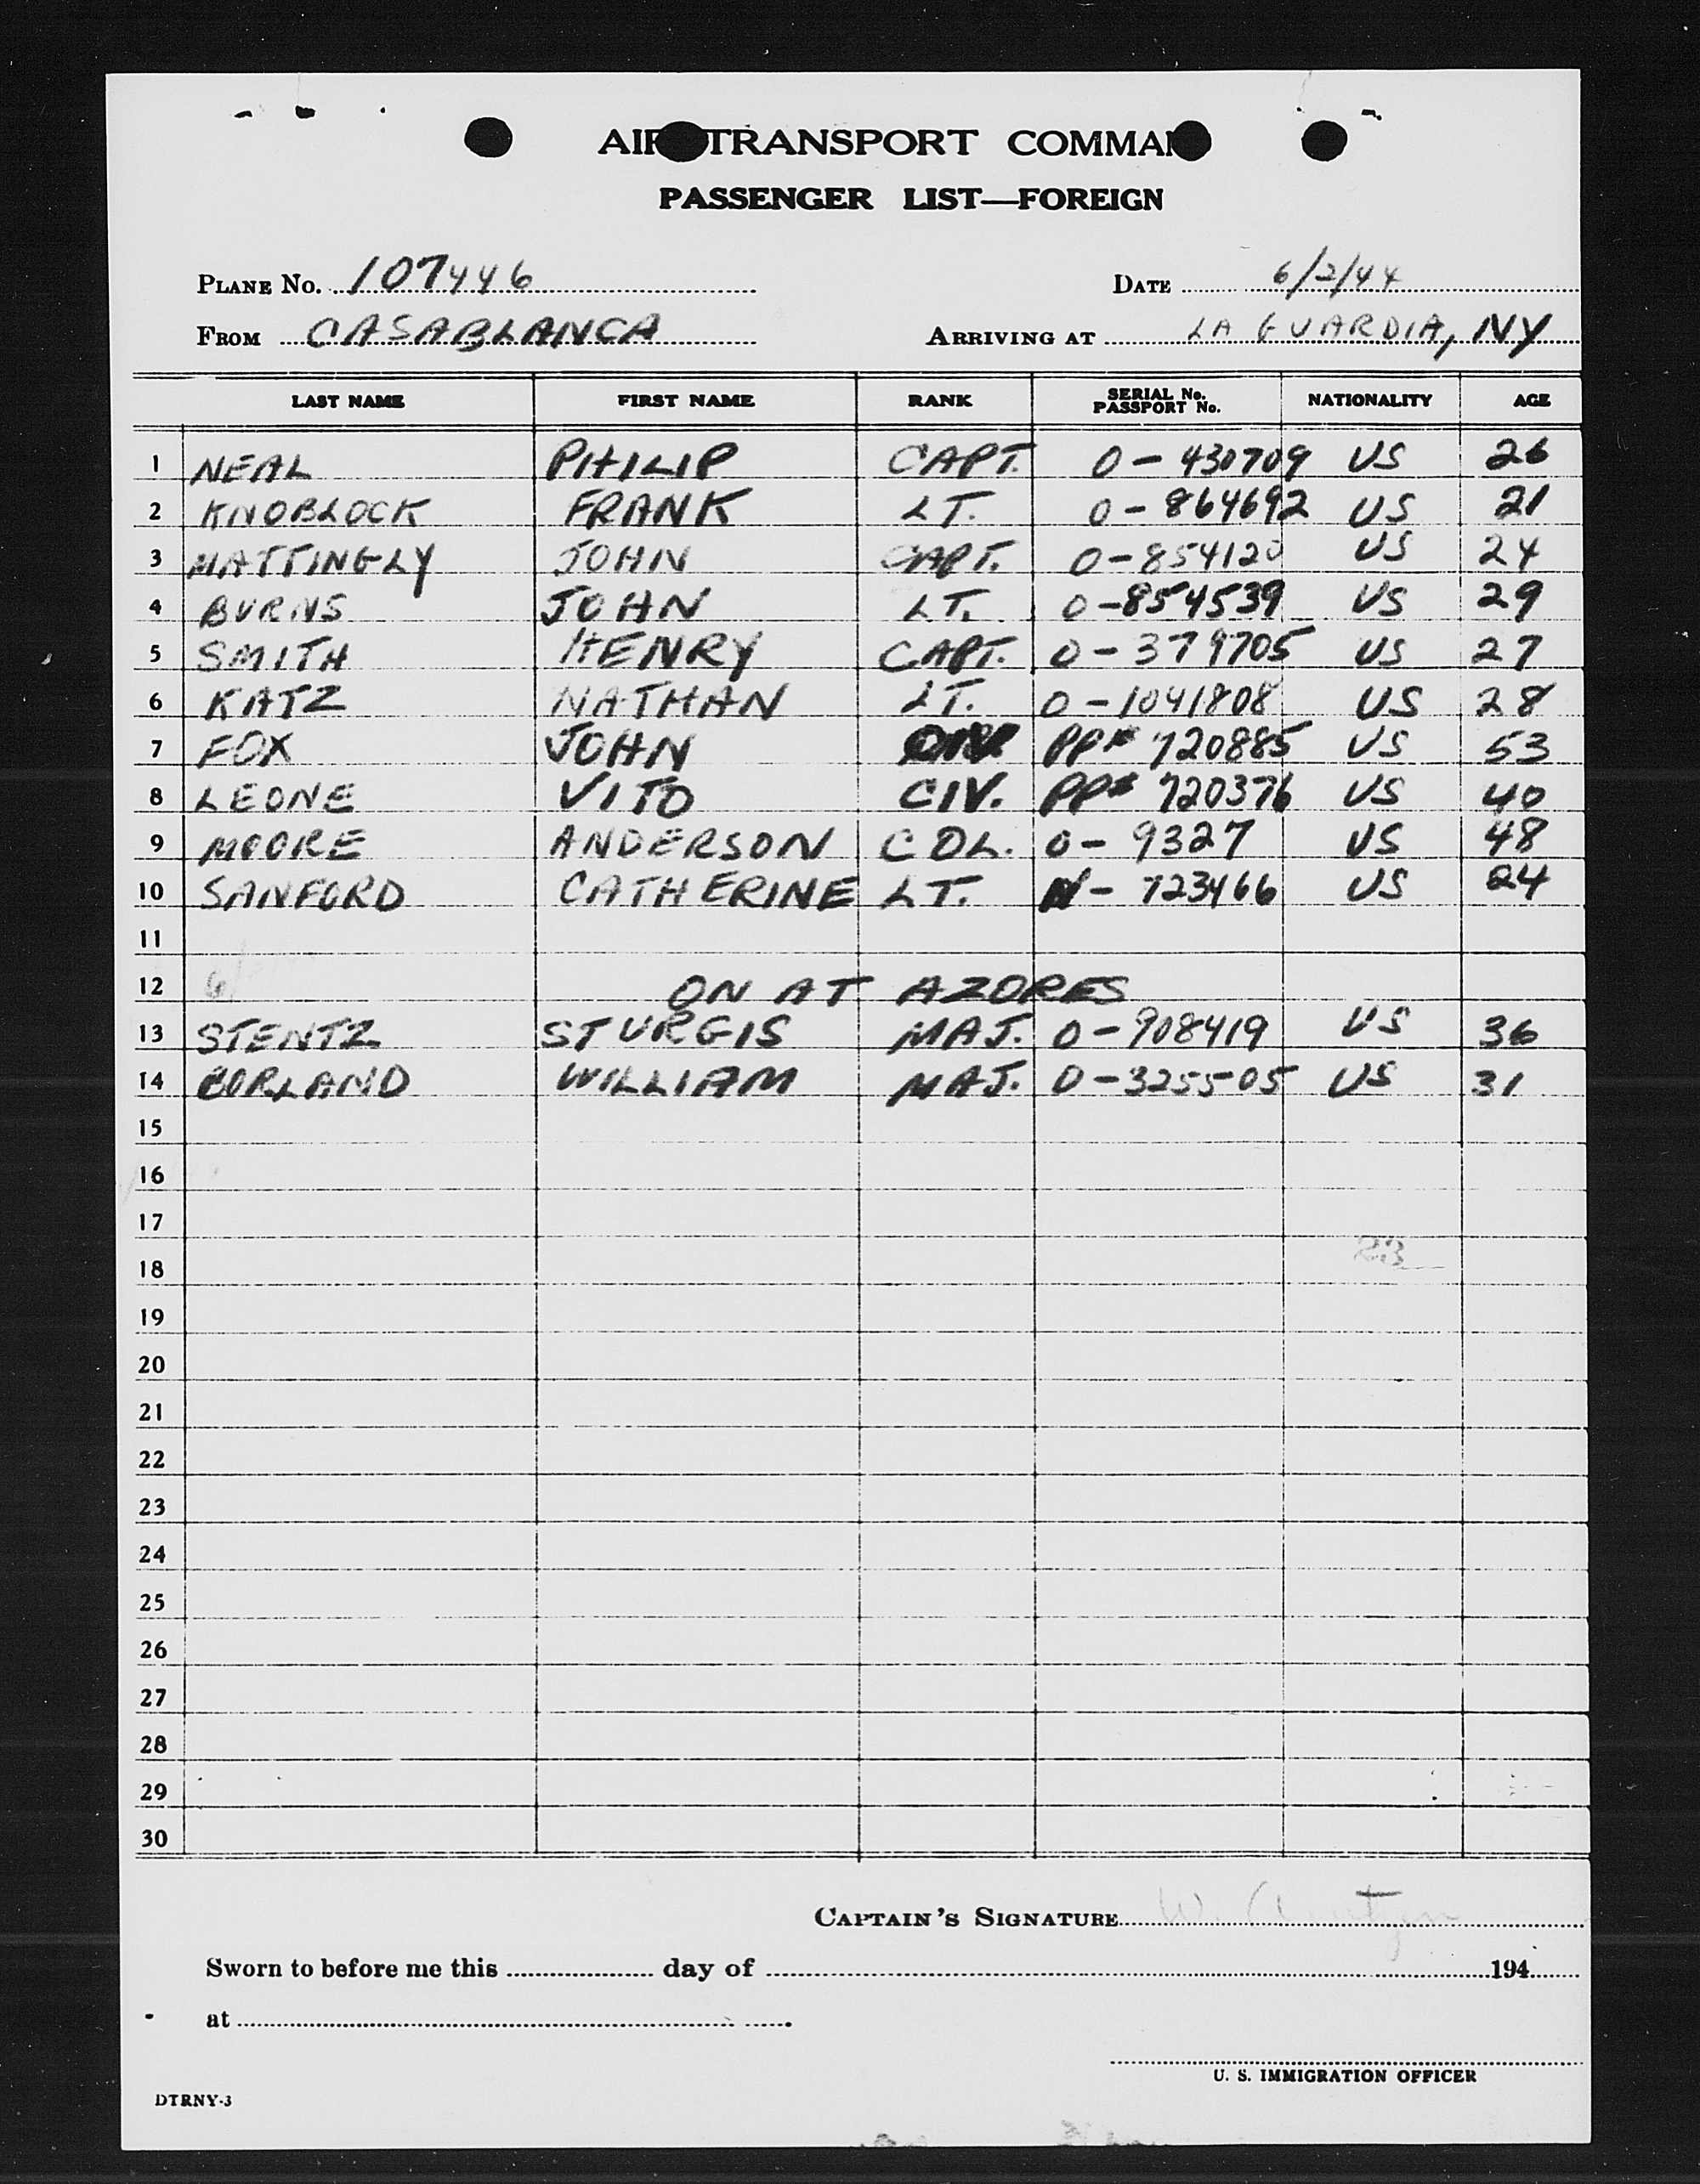 AIR TRANSPORT COMMAND
PASSENGER LIST—FOREIGN
PLANE No. 107446 DATE 6/2/44
FROM CASABLANCA ARRIVING AT LA GUARDIA, NY
LAST NAME FIRST NAME RANK SERIAL No. PASSPORT No. NATIONALITY AGE
1 NEAL PHILIP CAPT. O-430709 US 26
2 KNOBLOCK FRANK LT. O-864692 US 21
3 MATTINGLY JOHN CAPT. O-854120 US 24
4 BURNS JOHN LT. O-854539 US 29
5 SMITH HENRY CAPT. O-379705 US 27
6 KATZ NATHAN LT. O-1041808 US 28
7 FOX JOHN PP# 720885 US 53
8 LEONE VITO CIV. PP# 720376 US 40
9 MOORE ANDERSON COL. O-9327 US 48
10 SANFORD CATHERINE LT. N-723466 US 24
11
12 ON AT AZORES
13 STENTZ STURGIS MAJ. O-908419 US 36
14 BORLAND WILLIAM MAJ. O-325505 US 31
15
16
17
23
18
19
20
21
22
23
24
25
26
27
28
29
30
CAPTAIN'S SIGNATURE W.
Sworn to before me this day of 194
at
U. S. IMMIGRATION OFFICER
DTRNY-3